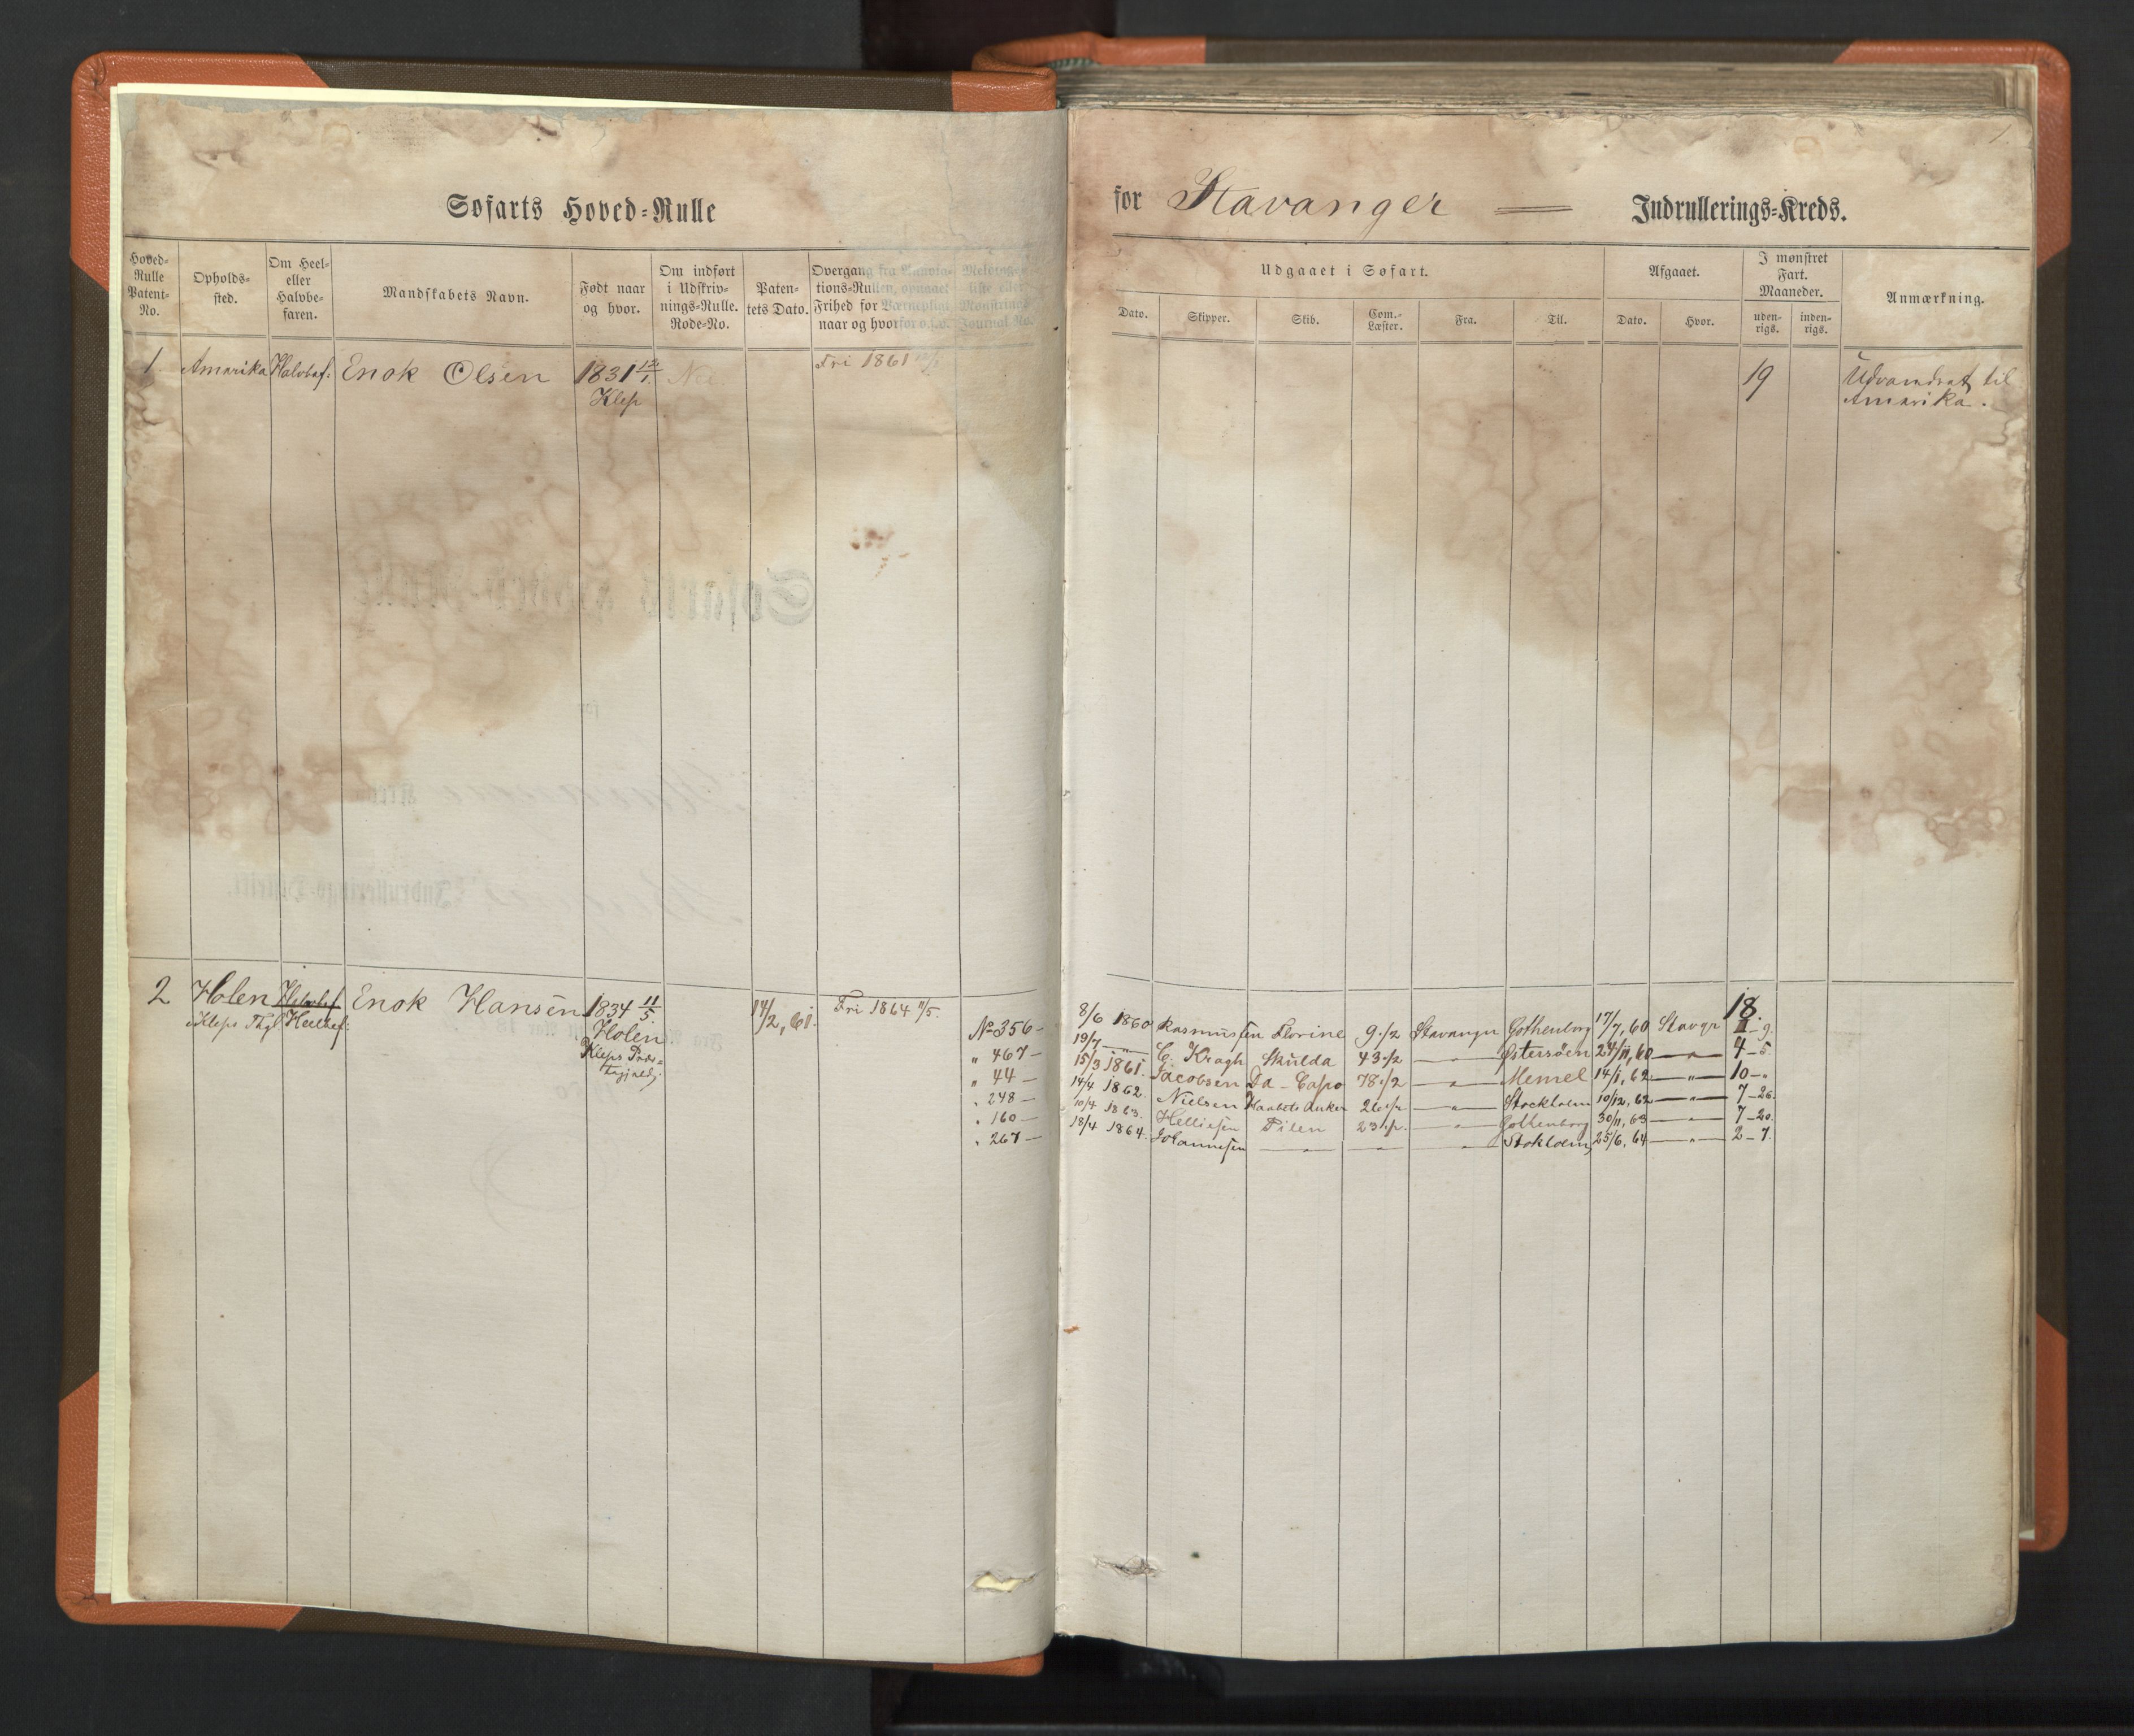 Søfarts Hoved-Rulle
for Stavanger — Indrullerings-Kreds.
1.
Hoved-Rulle Patent-No.
Opholds-sted.
Om Heel- eller Halvbe-faren.
Mandskabets Navn.
Født naar og hvor.
Om indført i Udskriv-nings-Rulle. Rode-No.
Paten-tets Dato.
Overgang fra Annota-tions-Rullen, opnaaet Frihed for Værnepligt naar og hvorfor o.s.v.
Udgaaet i Søfart.
Dato.
Skipper.
Skib.
Com.-Læster.
Fra.
Til.
Afgaaet.
Dato.
Hvor.
I mønstret Fart. Maaneder.
uden-rigs.
inden-rigs.
Anmærkning.
1 Amerika Halvbef: Enok Olsen 1831 Fri 1861 19 Udvandret til
Klep Amerika.
2 Holen Halvbef Enok Hansen 1834 11/5. 14/2, 61. Fri 1864 11/5. 18.
Kleps Thgl Heelbef: Holen
Kleps Præs-
tegjeld;
No 356 – 8/6 1860 Rasmussen Florine 9 1/2 Stavanger Gothenborg 17/7, 60 Stavgr
" 467 – 19/7 — " C. Kragh Skulda 43 1/2 — " — Østersøen 24/11, 60 — " — 4 – 5.
" 44 – 15/3 1861. Jacobsen Da-Capo 78 1/2 — " — Memel 14/1, 62 — " — 10 – "
" 248 – 14/4 1862. Nielsen Haabets Anker 26 1/2 — " — Stockholm 10/12, 62 — " — 7 – 26.
" 160 – 10/4 1863. Helliesen 23 1/2 — " — Gothenborg 30/11, 63 — " — 7 – 20.
" 267 – 18/4 1864. Johannesen — " — — " — " Stokholm, 25/6, 64 — " — 2 – 7.